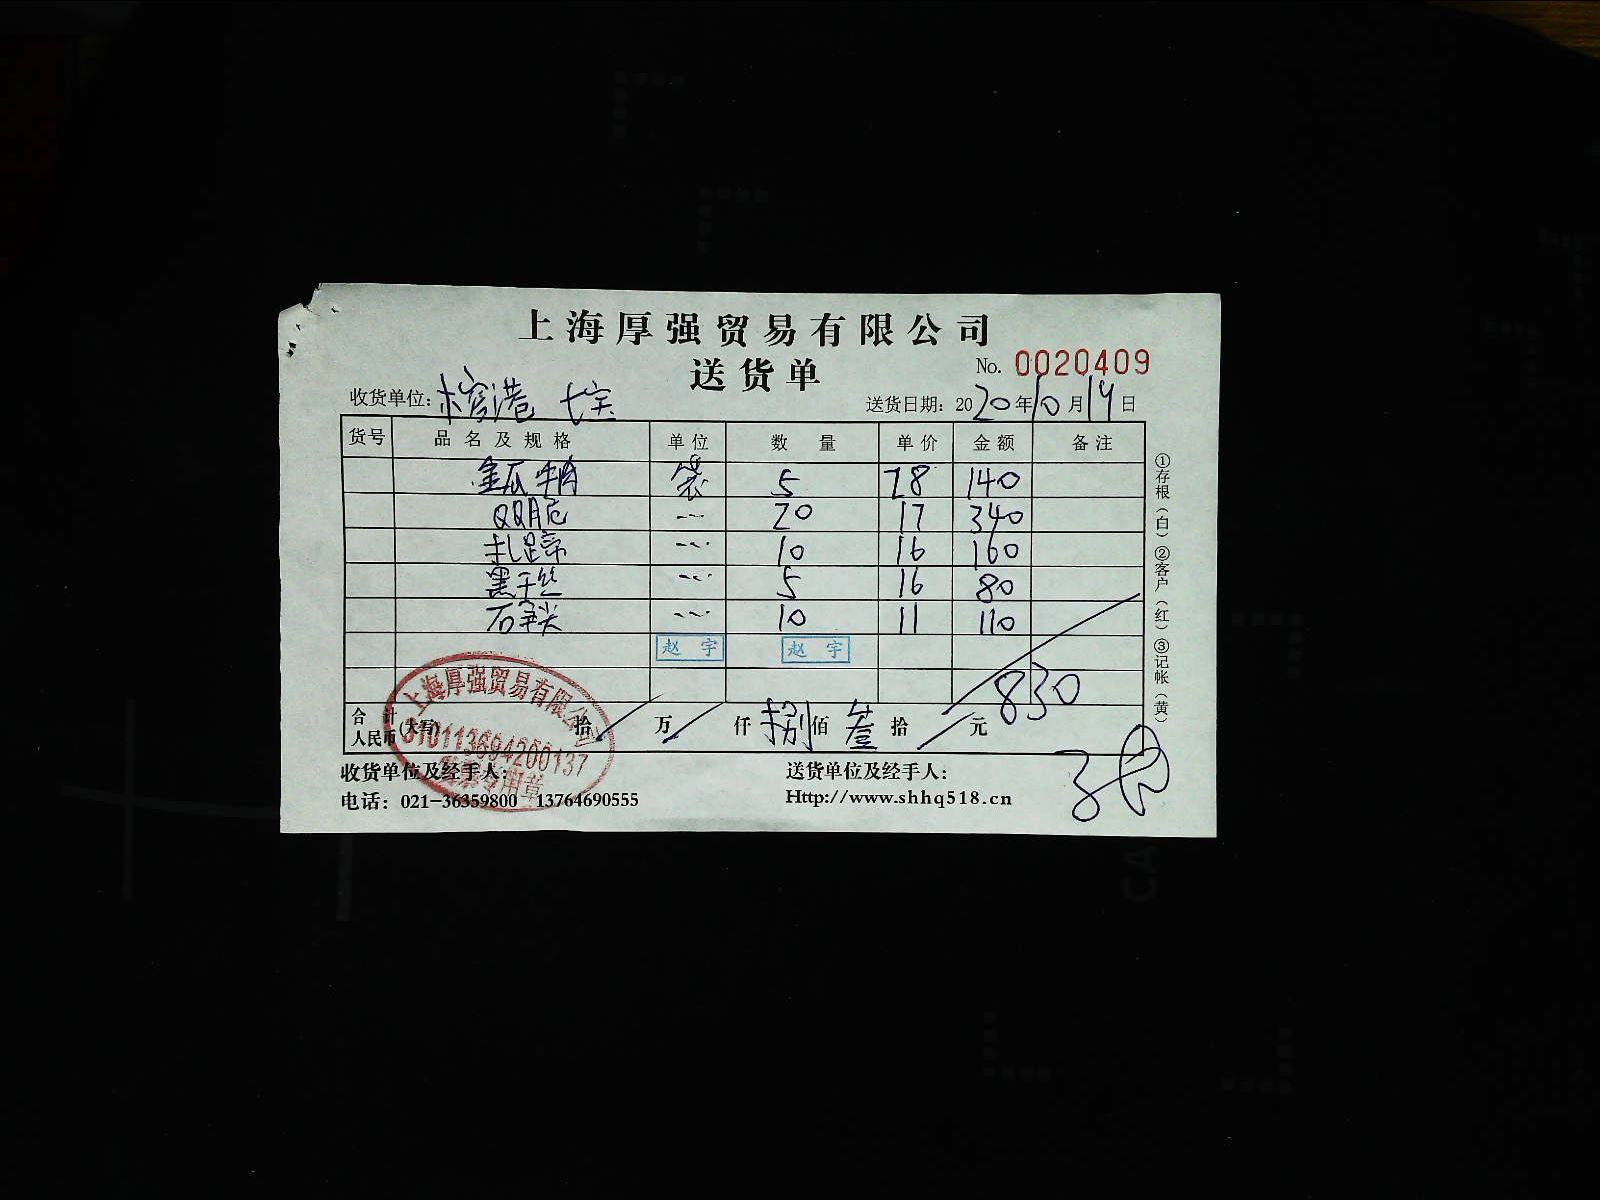 上海厚强贸易有限公司
送货单
No. 0020409
收货单位: 榕港 七宝
送货日期: 2020年10月19日
货号 品名及规格 单位 数量 单价 金额 备注
金瓜 袋 5 28 140
QQ 20 17 340
扎蹄 10 16 160
黑干丝 5 16 80
石笋尖 10 11 110
赵宇 赵宇
830
合计人民币(大写) 拾 万 仟 捌佰 叁拾 元
上海厚强贸易有限公司
310113694200137
收货单位及经手人:
送货单位及经手人:
电话: 021-36359800 13764690555
Http://www.shhq518.cn
①存根(白)②客户(红)③记帐(黄)
CA